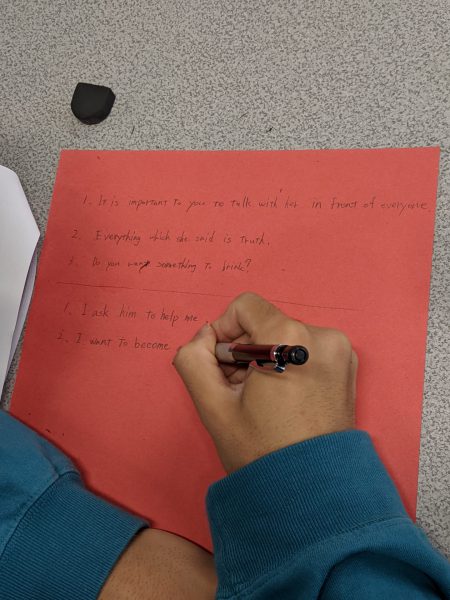 1. It is important to you to talk with her in front of everyone.
2. Everything which she said is truth.
3. Do you want something to drink?
1. I ask him to help me.
2. I want to become